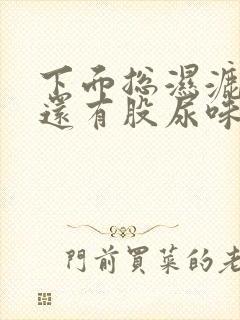 下面总濕漉
還有股尿味
門前買菜的老